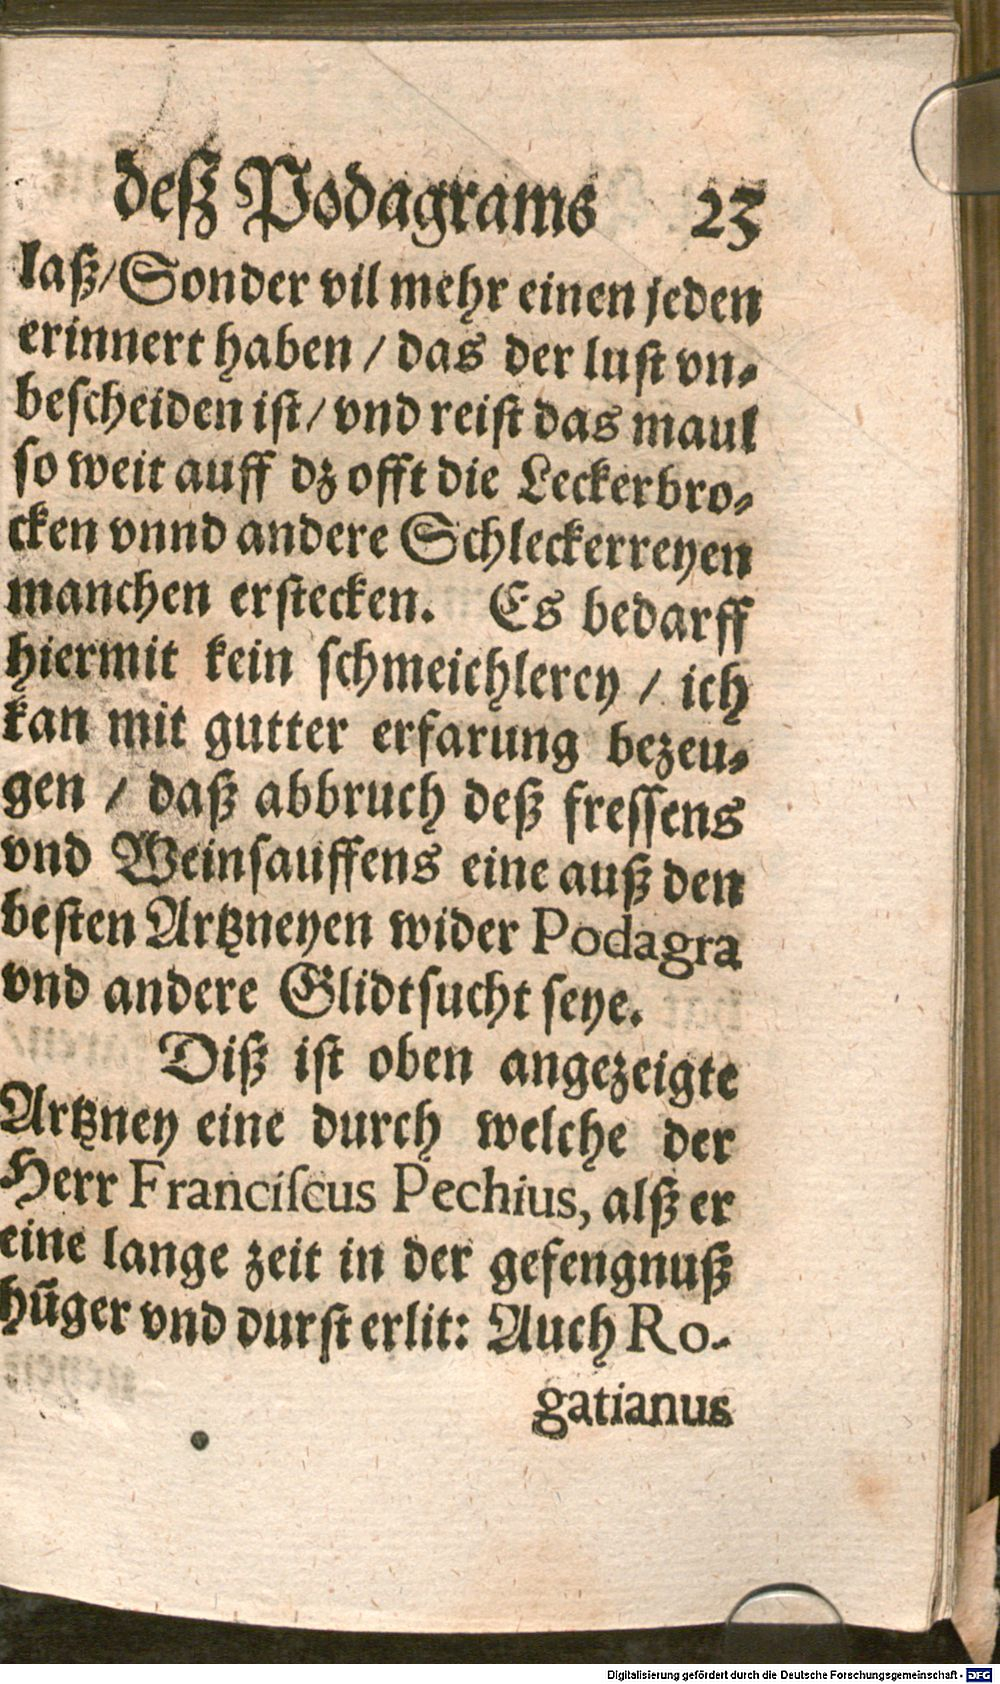 deß Podagrams 23
laß/ Sonder vil mehr einen jeden
erinnert haben / das der lust vn⸗
bescheiden ist/ vnd reist das maul
so weit auff dz offt die Leckerbro⸗
cken vnnd andere Schleckerreyen
manchen erstecken. Es bedarff
hiermit kein schmeichlerey / ich
kan mit gutter erfarung bezeu⸗
gen / daß abbruch deß fressens
vnd Weinsauffens eine auß den
besten Artzneyen wider Podagra
vnd andere Glidtsucht seye.
Diß ist oben angezeigte
Artzney eine durch welche der
Herr Franciſcus Pechius, alß er
eine lange zeit in der gefengnuß
hūger vnd durst erlit: Auch Ro-
gatianus
Digitalisierung gefördert durch die Deutsche Forschungsgemeinschaft - DFG